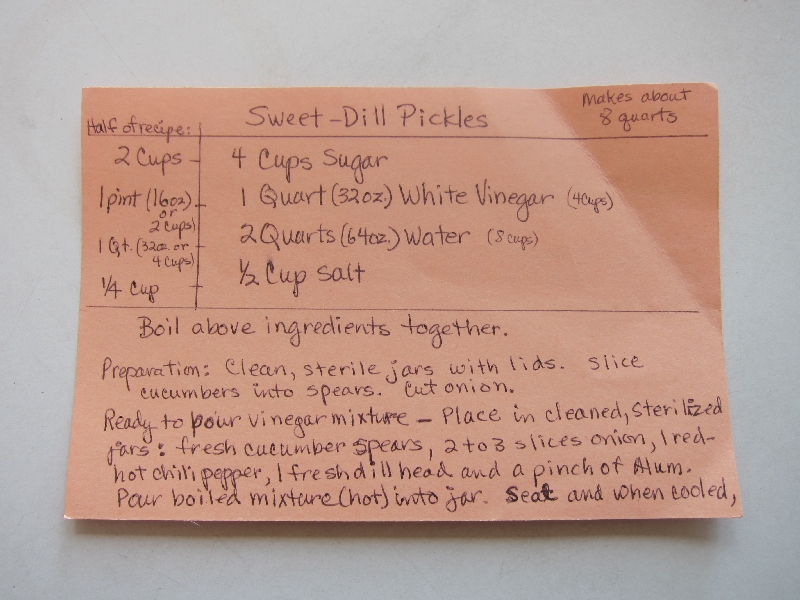 Makes about
8 quarts
Sweet-Dill Pickles
Half of recipe:
2 Cups - 4 Cups Sugar
1 pint (16oz) or 2 cups) - 1 Quart (32oz.) White Vinegar (4 Cups)
1 Qt. (32oz. or 4 cups) - 2 Quarts (64oz.) Water (8 cups)
1/4 Cup - 1/2 Cup Salt
Boil above ingredients together.
Preparation: Clean, sterile jars with lids. Slice
cucumbers into spears. Cut onion.
Ready to pour vinegar mixture - Place in cleaned, sterilized
jars: fresh cucumber spears, 2 to 3 slices onion, 1 red-
hot chili pepper, 1 fresh dill head and a pinch of Alum.
Pour boiled mixture (hot) into jar. Seal and when cooled,